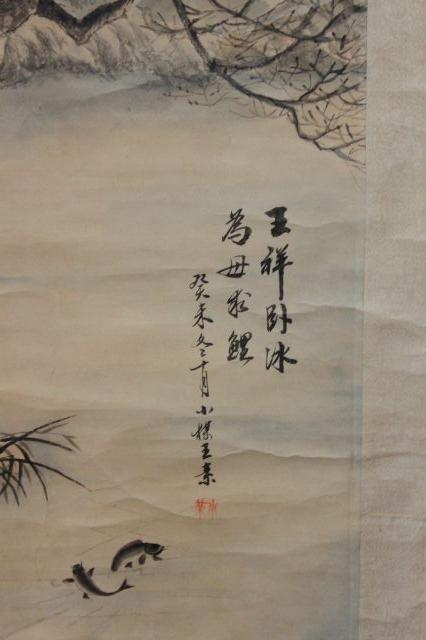 王祥卧冰
為母求鯉
癸未冬十月小樓王素